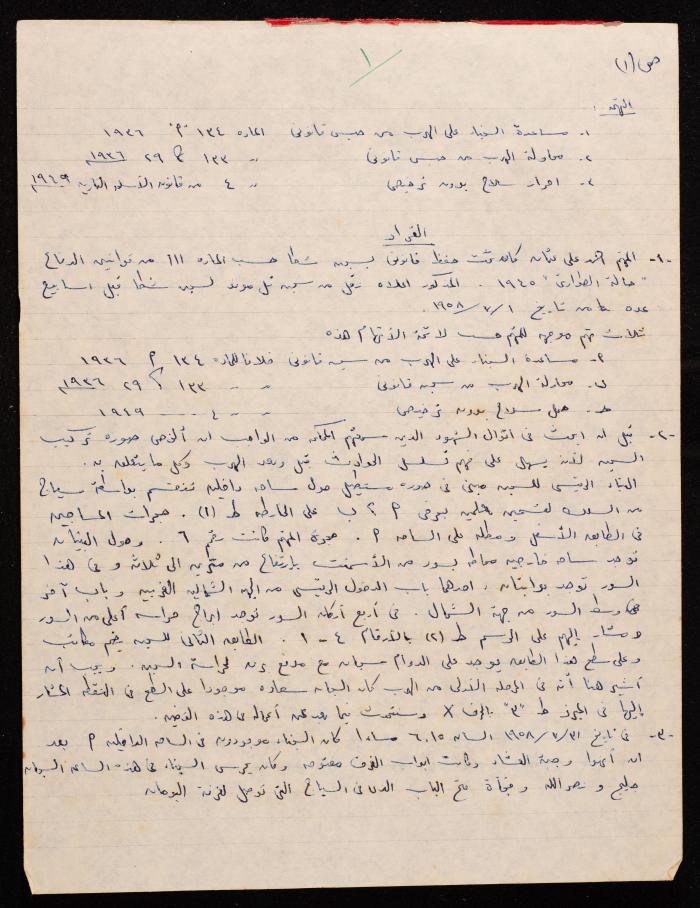 ص (١)
١
التهم :
١- مساعدة السجناء على الهرب من حبس قانوني المادة ١٣٤ "م" ١٩٣٦
٢- محاولة الهرب من حبس قانوني " ١٣٣ ٢٩ ١٩٣٦
٣- احراز سلاح بدون ترخيص " ٤ من قانون الأسلحة النارية ١٩٤٩
القرار
١- المتهم احمد علي عثمان كان تحت حفظ قانوني بسجن شطا حسب المادة ١١١ من قوانين الدفاع
"حالة الطوارئ" ١٩٤٥ . المذكور اعلاه نقل من سجن تل موند لسجن شطا قبل اسابيع
عده من تاريخ ١/٧/١٩٥٨.
ثلاث تهم موجهه للمتهم حسب لائحة الأتهام هذه
٢- مساعدة السجناء على الهرب من سجن قانوني خلافا للماده ١٣٤ م ١٩٣٦
ب- محاولة الهرب من سجن قانوني " " ١٣٣ ٢٩ ١٩٣٦
ج- حمل سلاح بدون ترخيص " " ٤ ١٩٤٩
٢- قبل ان ابحث في اقوال الشهود الذين من الواجب ان ألخص صوره تركيب
السجن لأنه يسهل علي فهم تسلسل الحوادث قبل وبعد الهرب وكل ما يتعلق به.
البناء الرئيسي للسجن مبني في صوره مستطيل حول ساحه داخليه تنقسم بواسطة سياج
من السلك لقسمين ٢ ب على الخارطه ط (١). حجرات المساجين
في الطابق الأسفل ومطله على الساحه ٢. حجرة المتهم كانت رقم ٦. وحول البنيان
توجد ساحه خارجيه محاطه بسور من الأسمنت بإرتفاع من مترين الى ثلاثة وفي هذا
السور توجد بوابتان. احدهما باب الدخول الرئيسي من الجهة الشماليه الغربيه وباب آخر
وسط السور من جهة الشمال. في أربع أركان السور توجد ابراج حراسه أعلى من السور
ومشار إليهم على الرسم ط (٢) بالأرقام ٤-١. الطابق الثاني للسجن يضم مكاتب
وعلى سطح هذا الطابق يوجد على الدوام سجان مع مدفع برن لحراسة السجن. ويجب أن
أشير هنا أنه في المرحله الأولى من الهرب كان السجان سعاده موجودا على السطح في النقطه المشار
إليها في ط "٣" بالحرف X وسنتحدث فيما بعد عن أعماله في هذه القضيه.
٣- في تاريخ ٣١/٧/١٩٥٨ الساعه ٦.١٥ مساءا كان السجناء موجودون في الساحه الداخليه ٢ بعد
ان أنهوا وجبة العشاء وكانت ابواب الغرف مفتوحه وكان يحرس السجناء في هذه الساعه السجانان
خليج و نصرالله وفجأة فتح الباب في السياج التي توصل لغرفة البوصله